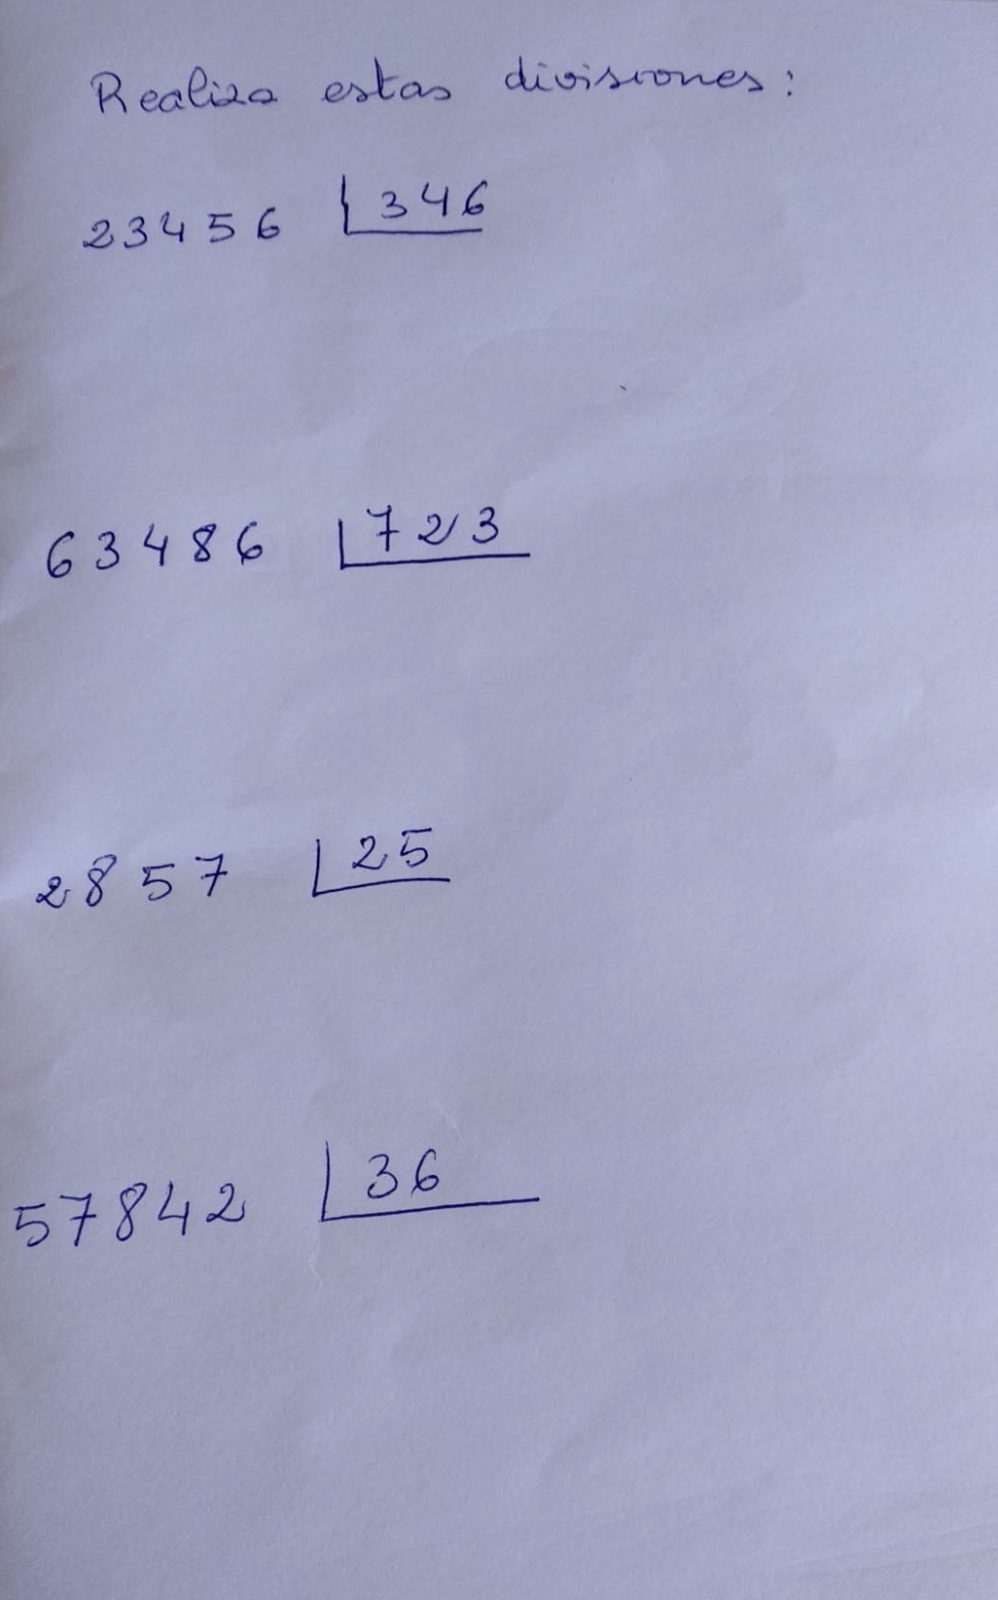 Realiza estas divisiones:
23456 346
63486 723
2857 25
57842 36